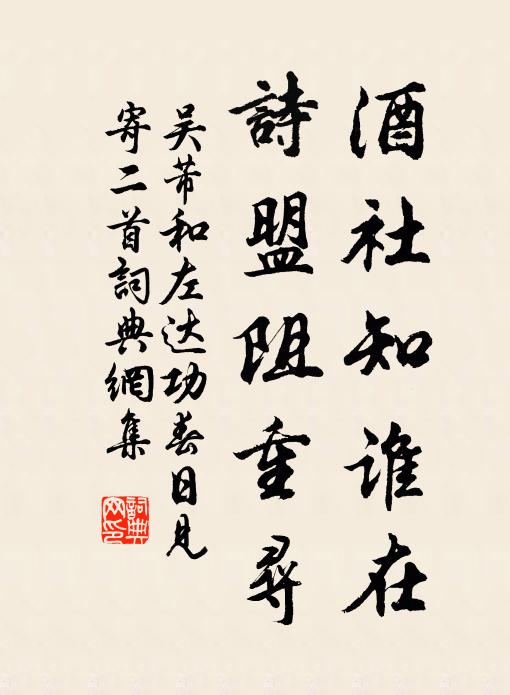 酒社知谁在
詩盟阻重尋
吴芾和左达功春日见
寄二首詞典網集
詞典
网印